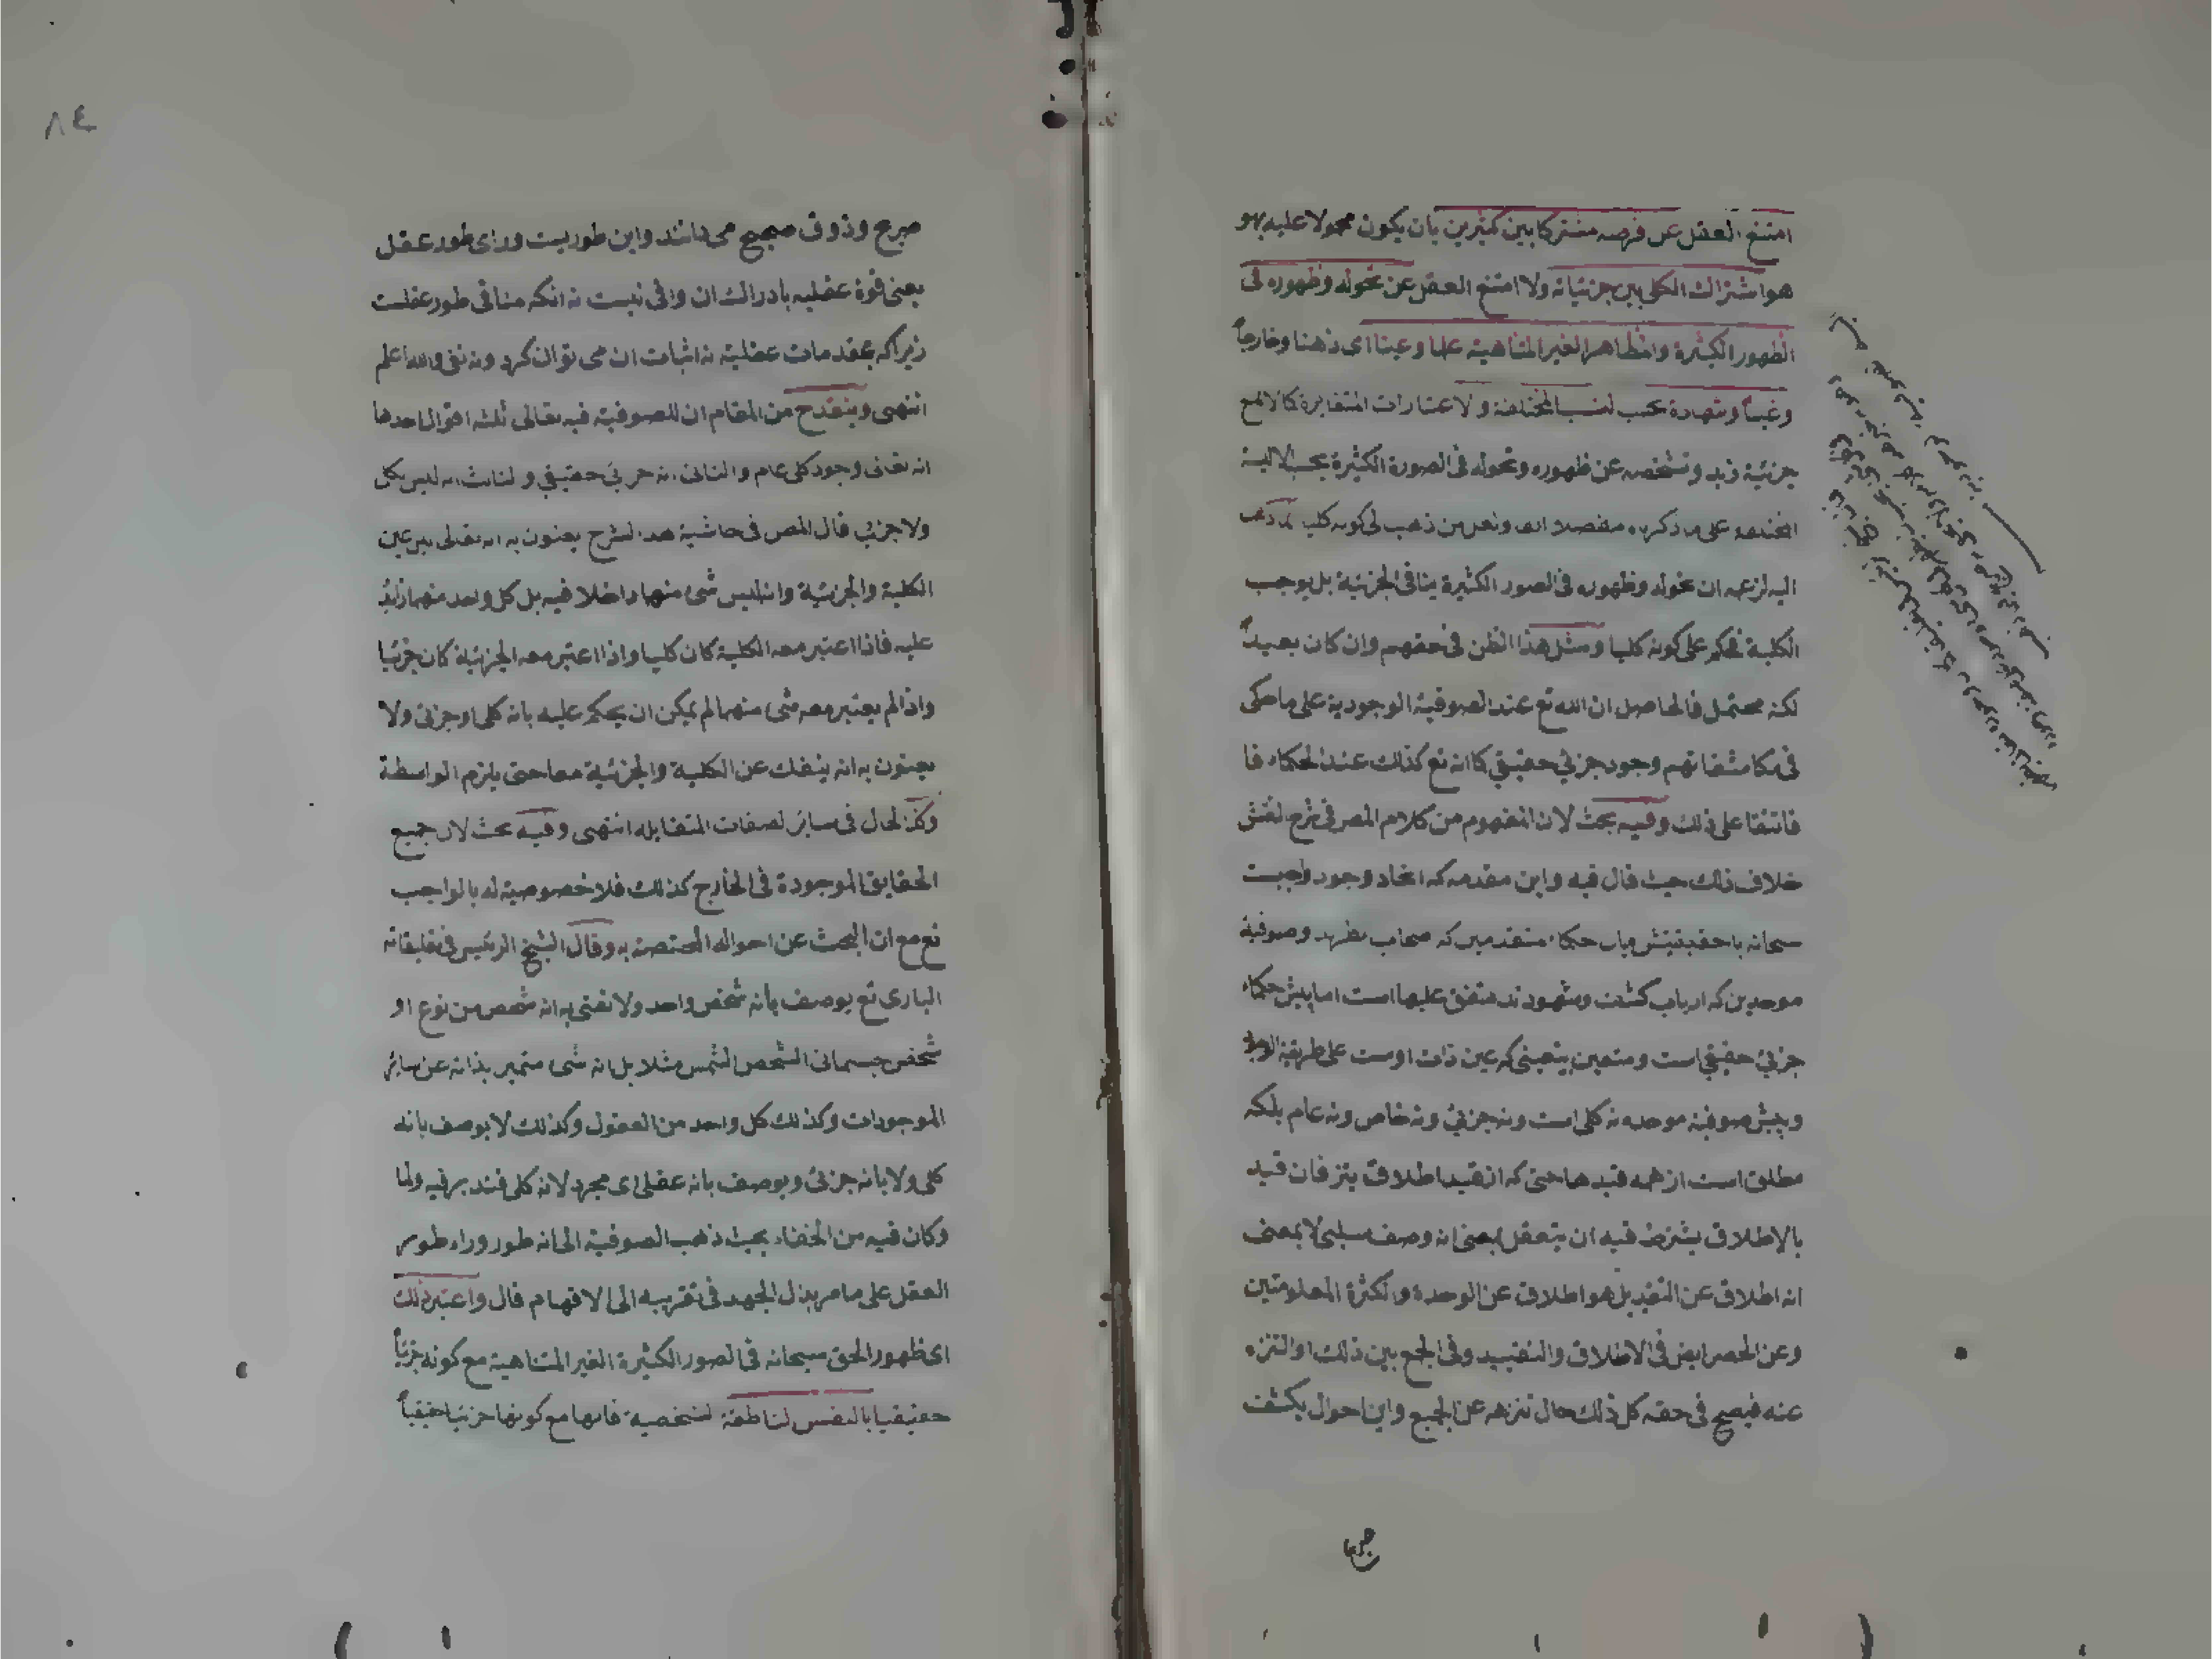 امتنع العقل عن فرضه مشتركا بين كثيرين بان يكون محمولا عليه بهو
هو اشتراك الكلى بين جزئياته ولا امتنع العقل عن تحوله وظهوره فى
الظهور الكثيرة والمظاهر الغير المتناهية علما وعينا اى ذهنا وخارجاً
وغيباً وشهادة بحسب النسب المختلفة والاعتبارات المتغايرة كالامتنع
جزئية زيد وتشخصه عن ظهوره وتحوله فى الصورة الكثيرة بحسب الالبسة
المختلفة على ما ذكره مفصلا انفا ولعل من ذهب الى كونه كليا انما ذهب
اليه لزعمه ان تحوله وظهوره فى الصور الكثيرة ينافى الجزئية بل يوجب
الكلية فحكم على كونه كليا ومثل هذا الظن فى حقهم وان كان بعيداً
لكنه محتمل فالحاصل ان الله تع عند الصوفية الوجودية على ما حكى
فى مكاشفاتهم وجود جزئي حقيقي كما انه تع كذلك عند الحكماء فا
فاتفقا على ذلك وفيه بحث لان المفهوم من كلام المص فى شرح النقش
خلاف ذلك حيث قال فيه واين مقدمه كه اتحاد وجود واجبست
سبحانه با حقيقتش ميان حكماء متقدمين كه صحاب نظرند وصوفية
موحدين كه ارباب كشف وشهودند متفق عليها است اما پيش حكماء
جزئي حقيقي است ومتعين بتعينى كه عين ذات اوست على طريقة الوجود
وپيش صوفية موحده نه كلى است ونه جزئي ونه خاص ونه عام بلكه
مطلق است از همه قيدها حتى كه از قيد اطلاق نيز فان قيد
بالاطلاق يشترط فيه ان يتعقل بمعنى انه وصف سلبى لا بمعنى
انه اطلاق عن التقيد بل هو اطلاق عن الوحدة والكثرة المعلومتين
وعن الحصر ايض فى الاطلاق والتقييد وفى الجمع بين ذلك او التنزه
عنه فيصح فى حقه كل ذلك حال تنزهه عن الجميع واين احوال بكشف
صرح وذوق صحيح مى باشد واين طوريست وراى طور عقل
يعنى قوة عقليه بادراك ان وافى نيست نه انكه منافى طور عقلست
زيراكه بمقدمات عقلية نه اثبات ان مى توان كرد ونه نفى والله اعلم
انتهى وينقدح من المقام ان للصوفية فيه تعالى ثلثه اقوال احدها
انه تعالى وجود كلى عام والثانى انه جزئي حقيقي والثالث انه ليس بكل
ولا جزئي قال المص فى حاشية هذا الشرح يعنون به انه تعالى غير عين
الكلية والجزئية وانه ليس شئ منهما داخلا فيه بل كل واحد منهما زائد
عليه فاذا اعتبر معه الكلية كان كليا واذا اعتبر معه الجزئية كان جزئيا
واذا لم يعتبر معه شئ منهما لم يمكن ان يحكم عليه بانه كلى او جزئى ولا
يعنون به انه ينفك عن الكلية والجزئية معا حتى يلزم الواسطة
وكذا الحال فى سائر الصفات المتقابله انتهى وفيه بحث لان جميع
الحقايق الموجودة فى الخارج كذلك فلا خصوصية له بالواجب
تع مع ان البحث عن احواله المختصة به وقال الشيخ الرئيس فى تعليقاته
البارى تع يوصف بانه شخص واحد ولا نعنى به انه شخص من نوع او
شخص جسمانى الشخص الشمس مثلا بل انه شى متميز بذاته عن سائر
الموجودات وكذلك كل واحد من العقول وكذلك لا يوصف بانه
كلى ولا بانه جزئى ويوصف بانه عقلى اى مجرد لانه كلى فتدبر فيه ولما
وكان فيه من الخفاء بحيث ذهب الصوفية الى انه طور وراء طور
العقل على ما مر بذل الجهد فى تقريبه الى الافهام قال واعتبر ذلك
اى ظهور الحق سبحانه فى الصور الكثيرة الغير المتناهية مع كونه جزئياً
حقيقيا بالنفس الناطقة الشخصية فانها مع كونها جزئيا حقيقياً
٨٤